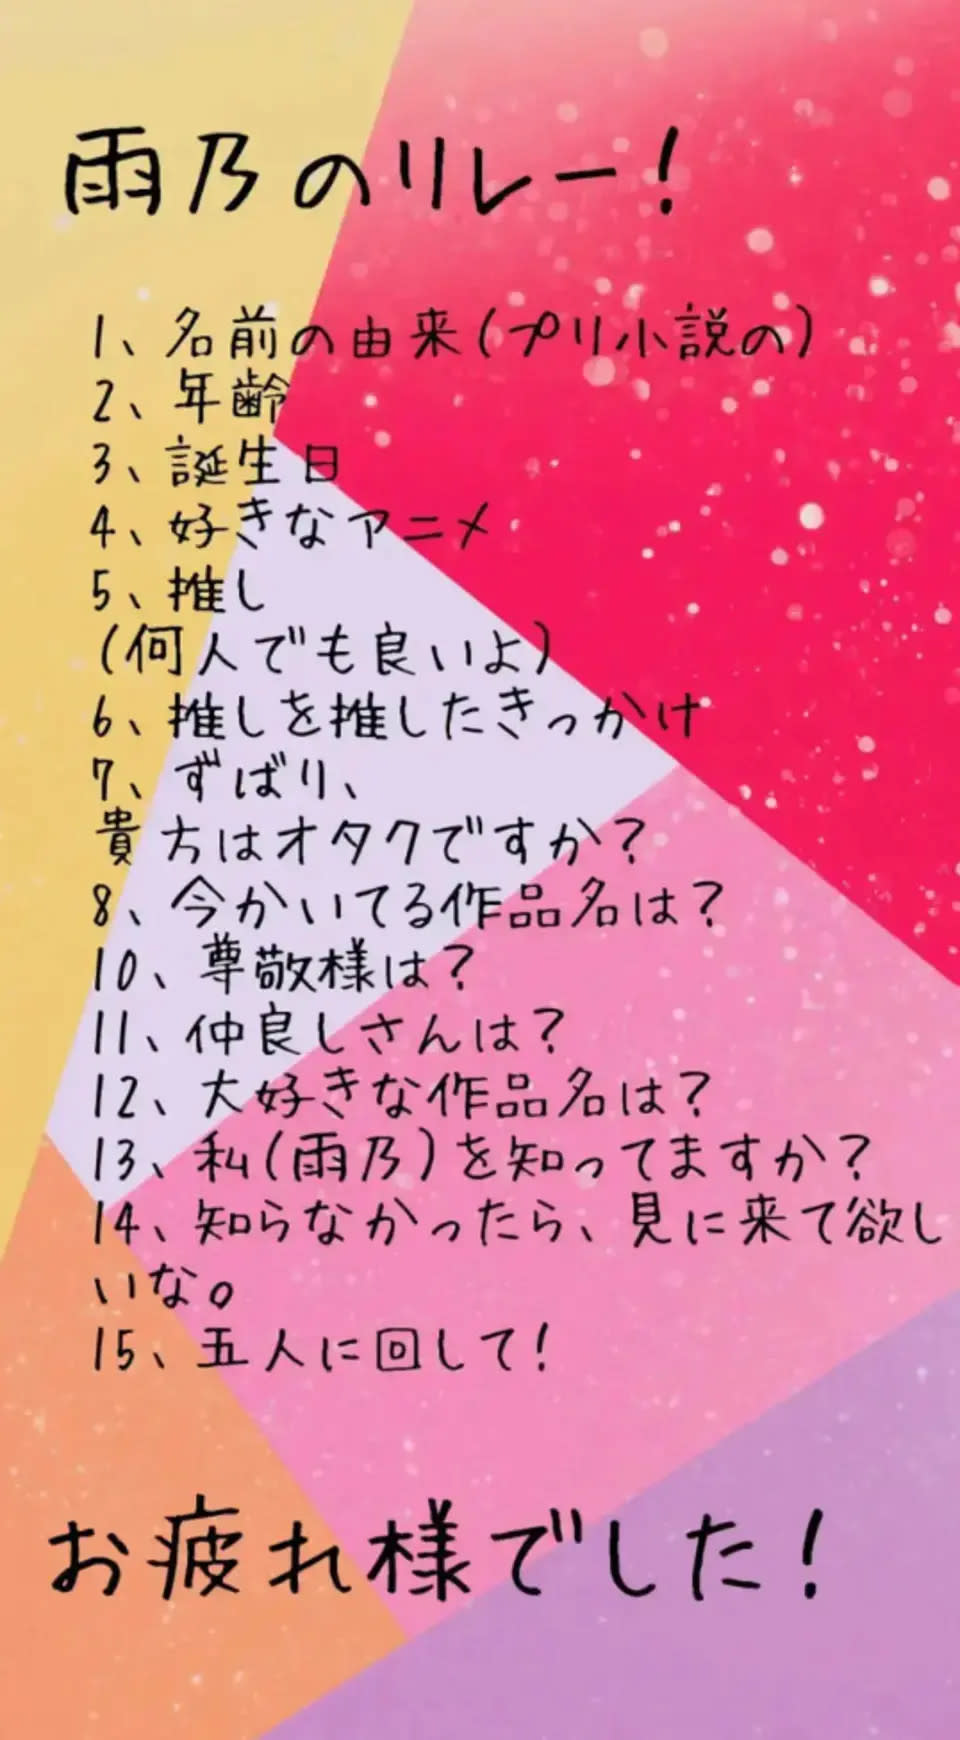 雨乃のリレー!
1、名前の由来(プリ小説の)
2、年齢
3、誕生日
4、好きなアニメ
5、推し
(何人でも良いよ)
6、推しを推したきっかけ
7、ずばり、
貴方はオタクですか?
8、今かいてる作品名は?
10、尊敬様は?
11、仲良しさんは?
12、大好きな作品名は?
13、私(雨乃)を知ってますか?
14、知らなかったら、見に来て欲し
いな。
15、五人に回して!
お疲れ様でした!